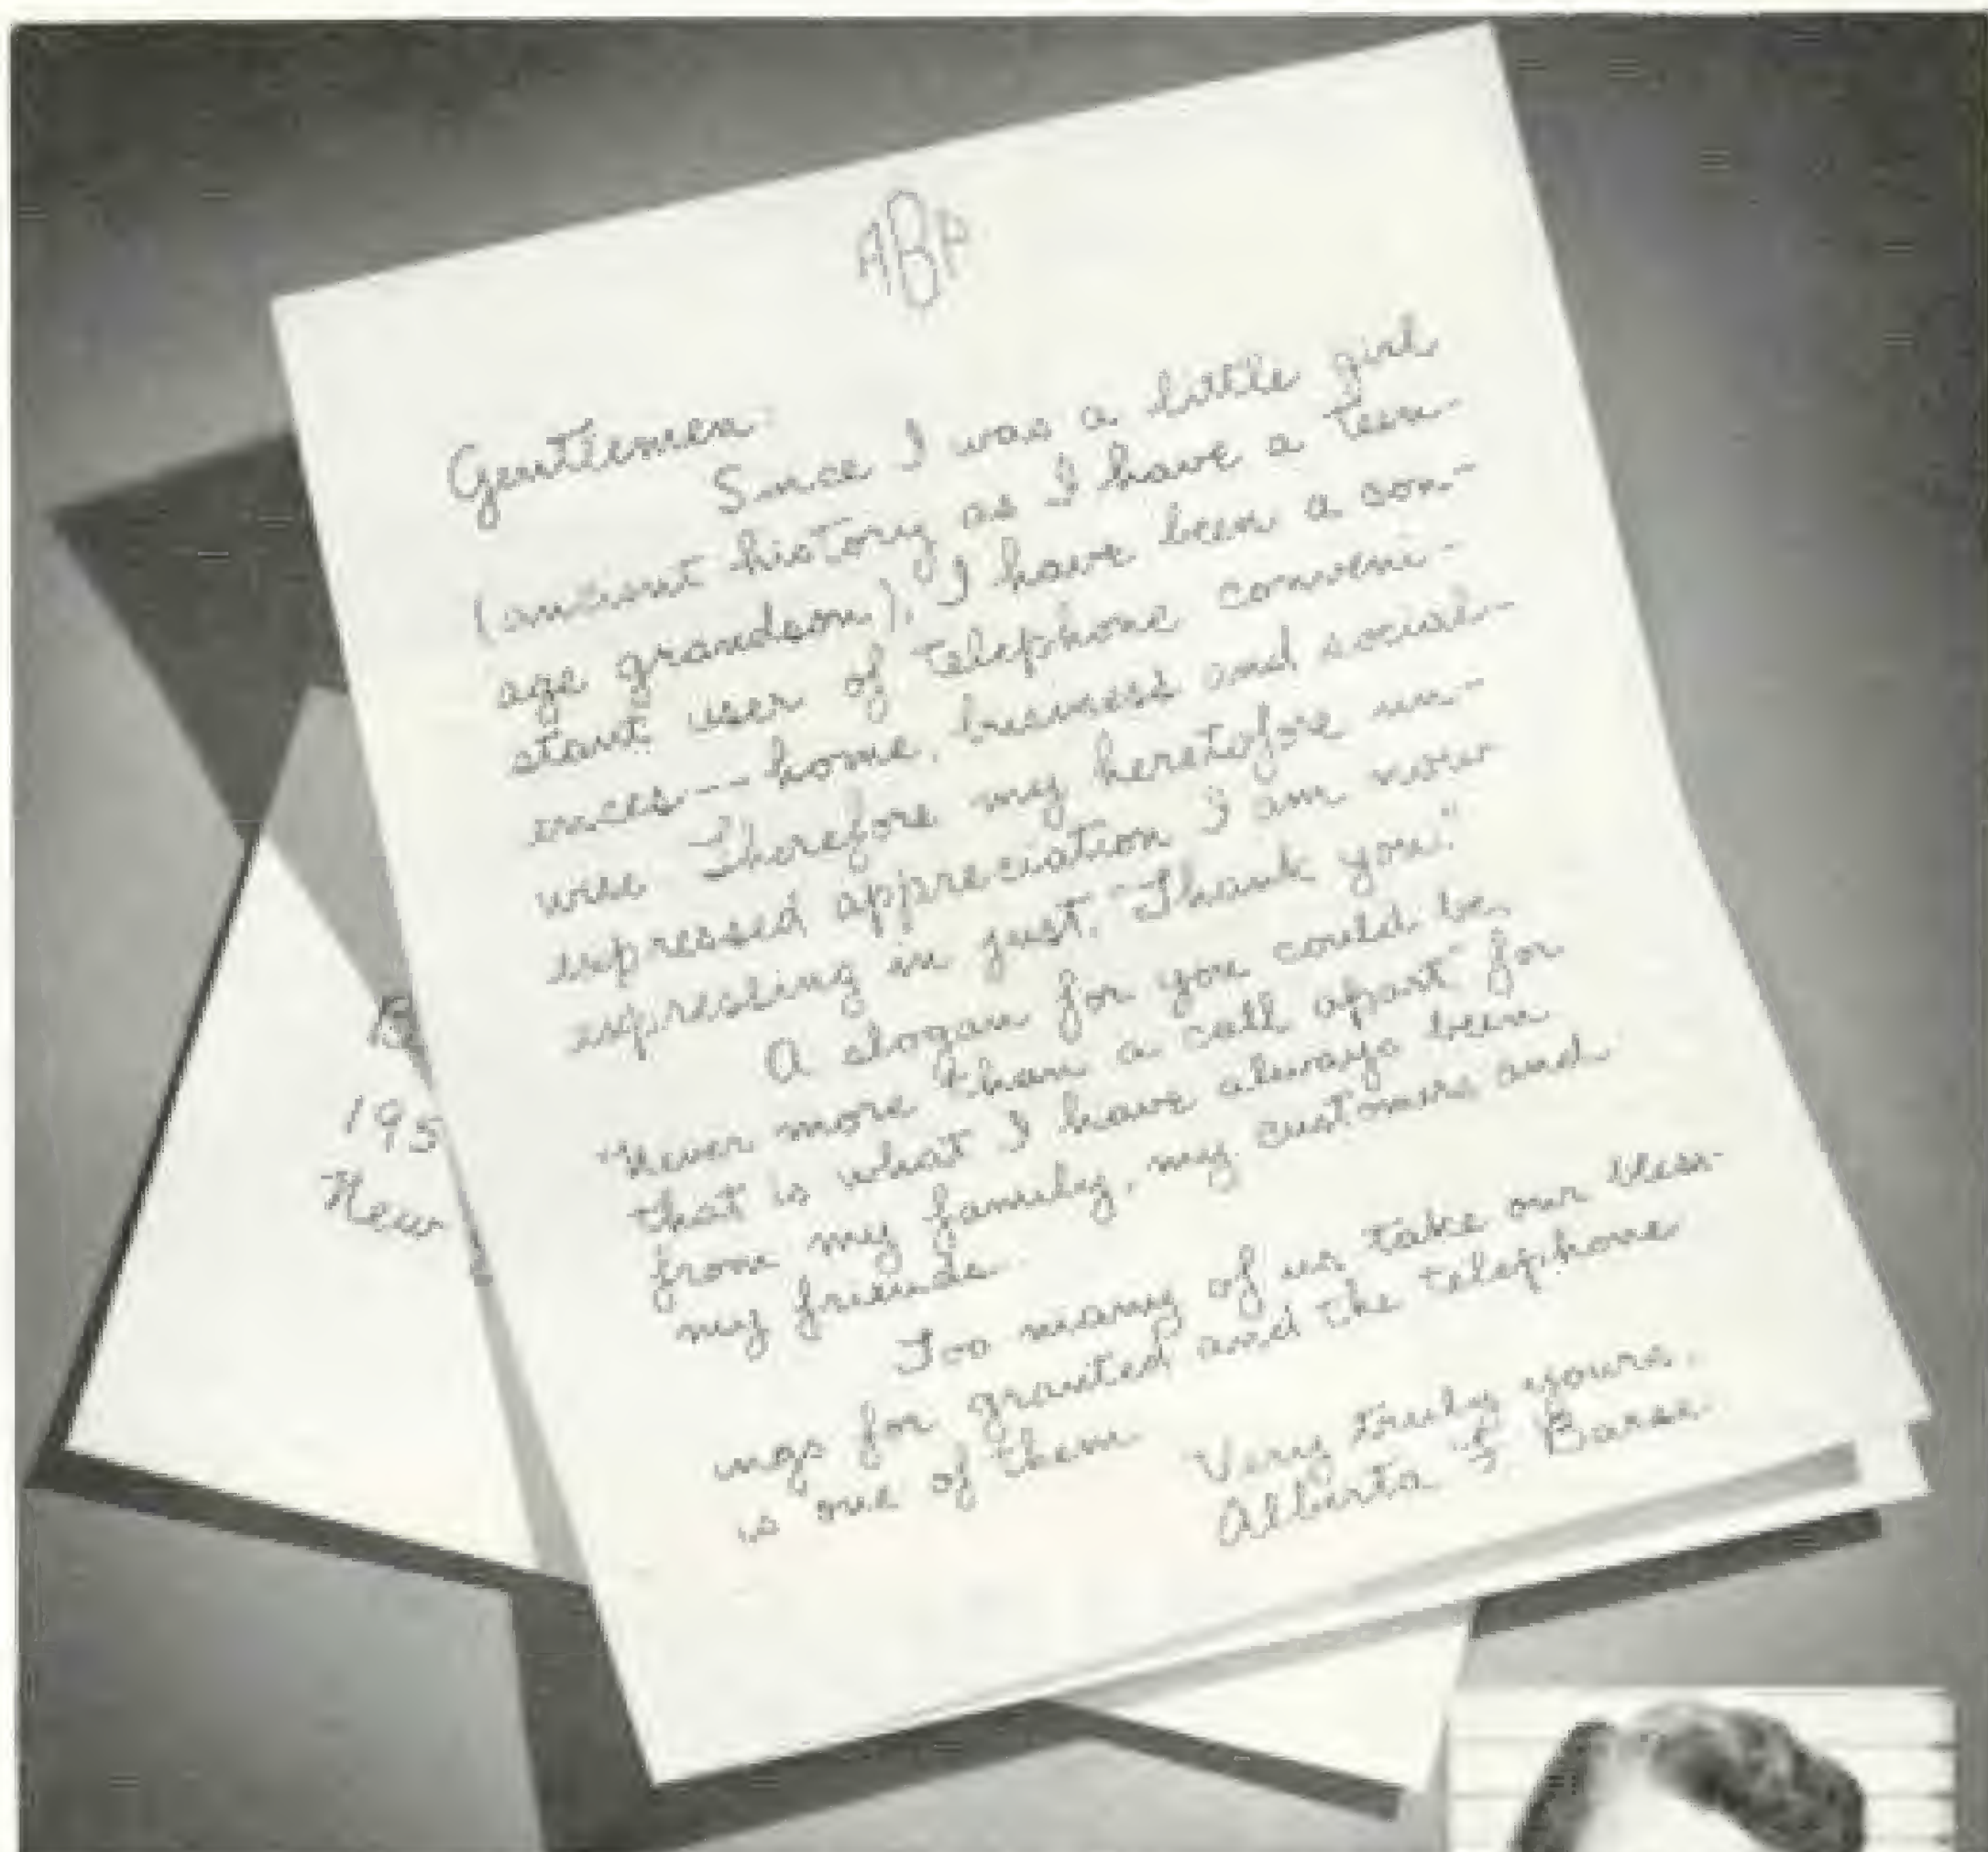 ABP
Gentlemen:
Since I was a little girl
(ancient history as I have a teen-
age grandson), I have been a con-
stant user of telephone conveni-
ences--- home, business and social-
wise. Therefore my heretofore un-
expressed appreciation I am now
expressing in just, "Thank you."
A slogan for you could be,
"Never more than a call apart" for
that is what I have always been
from my family, my customers and
my friends.
Too many of us take our bless-
ings for granted and the telephone
is one of them.
Very truly yours,
Alberta Barse
B
195
New